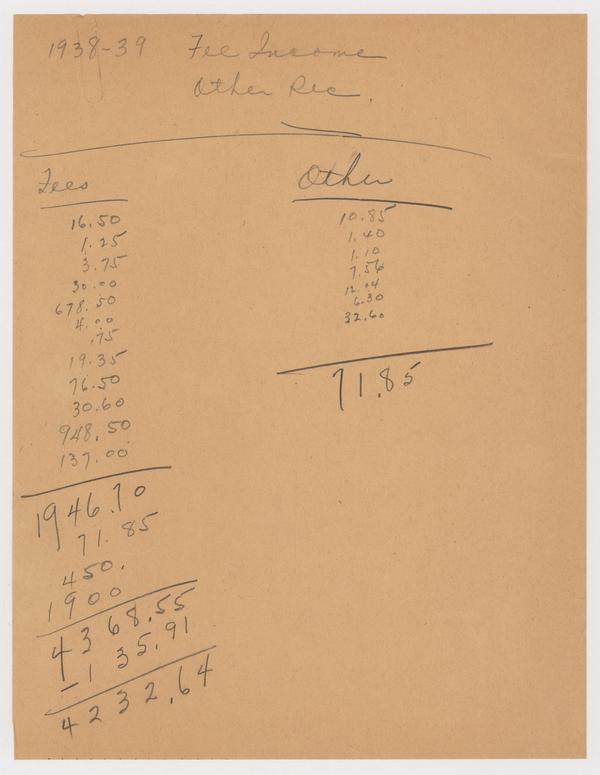 1938-39 Fee Income
Other Rec.
Fees
16.50
1.25
3.75
30.00
678.50
4.00
.75
19.35
76.50
30.60
948.50
137.00
1946.70
71.85
450.
1900
4368.55
-135.91
4232.64
Other
10.85
1.40
1.10
7.56
12.04
6.30
32.60
71.85